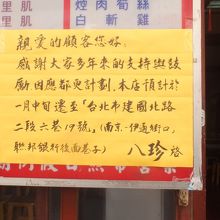 里肌
里肌
煙肉荀絲
白斬雞
親愛的顧客您好:
感謝大家多年來的支持與鼓
勵因應都更計劃.本店預計於
一月中旬遷至「台北市建國北路
二段六巷19號」(南京.伊通街口,
聯邦銀行後面巷子) 八珍啓